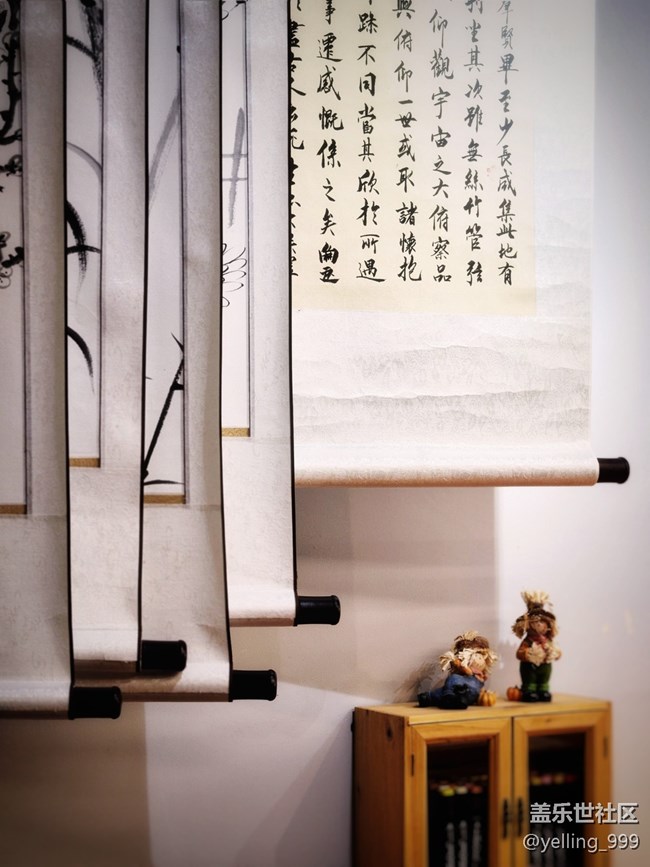 賢畢至少長咸集此地有
列坐其次雖無絲竹管弦
仰觀宇宙之大俯察品
與俯仰一世或取諸懷抱
躁不同當其欣於所遇
事遷感慨係之矣
盖乐世社区
@yelling_999